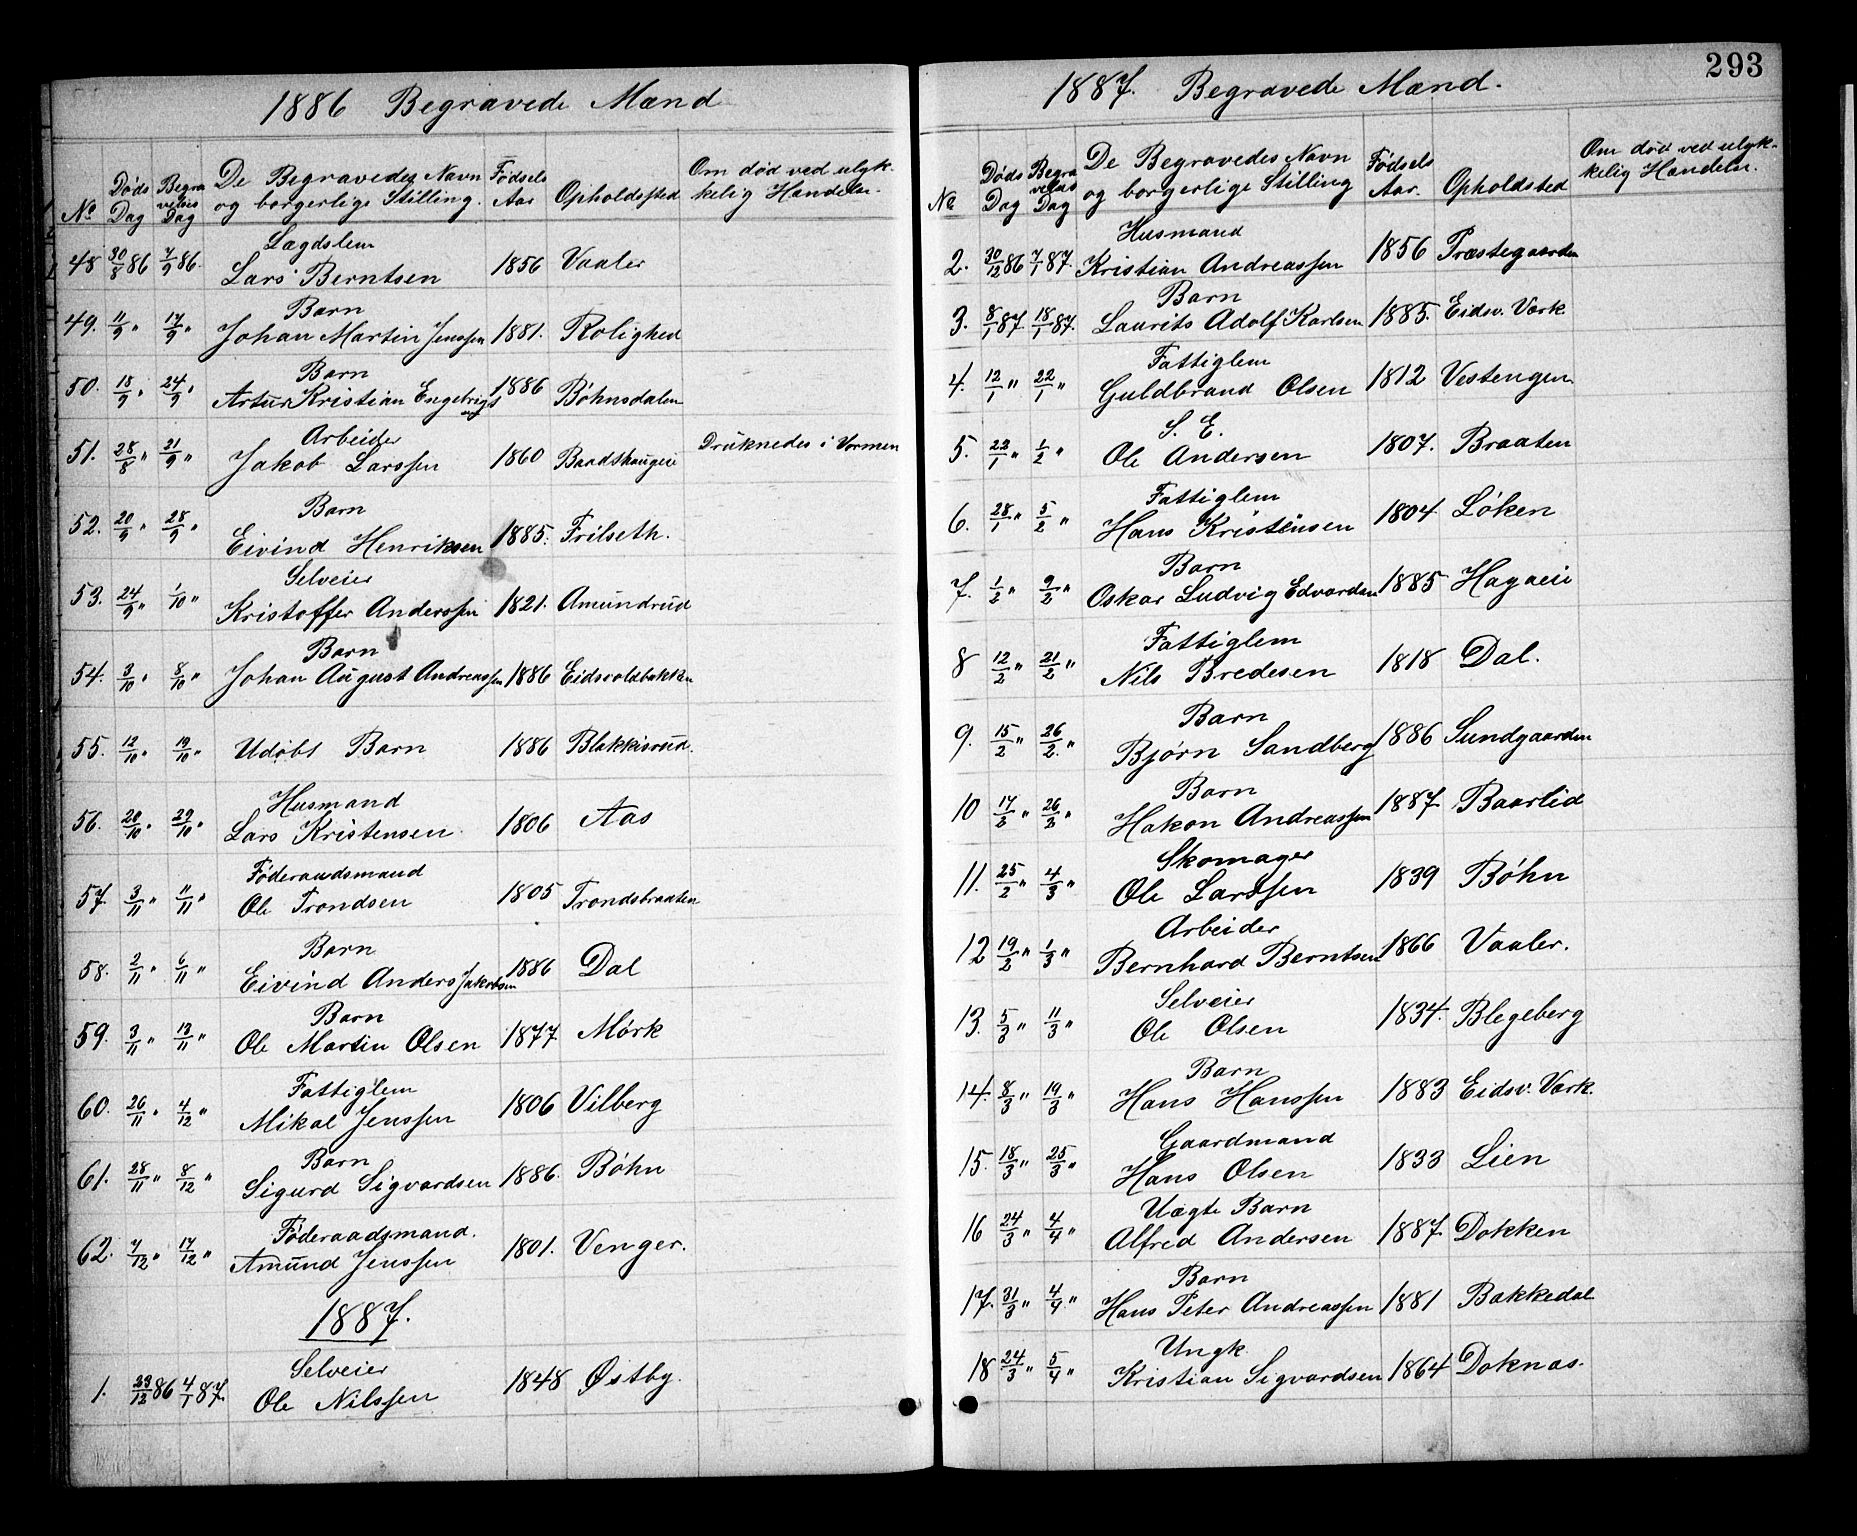 1886 Begravede Mænd
No Døds Dag Begravelses Dag De Begravedes Navn og borgerlige Stilling. Fødsels Aar Opholdssted Om død ved ulyk-kelig Hændelse.
Lægdslem
48 30/8 86 7/9 86. Lars Berntsen 1856 Vaaler
Barn
49. 11/9 " 17/9 " Johan Martin Jenssen 1881. Rolighed
Barn
50. 18/9 " 24/9 " Artur Kristian Engebrigts 1886 Bøhnsdalen
Arbeider
51. 28/8 " 21/9 " Jakob Larssen 1860 Baadshaugeie Druknedes i Vormen
Barn
52. 20/9 " 28/9 " Eivind Henriksen 1885. Frilseth.
Selveier
53. 24/9 " 1/10 " Kristoffer Anderssen 1821. Amundrud
Barn
54. 3/10 " 8/10 " Johan August Andreassen 1886 Eidsvoldbakken
55. 12/10 " 19/10 " Udøbt Barn 1886 Blakkisrud.
Husmand
56. 20/10 " 29/10 " Lars Kristensen 1806 Aas
Føderaadsmand
57 3/11 " 11/11 " Ole Trondsen 1805 Trondsbraaten
Barn
58. 2/11 " 6/11 " Eivind Anders Jakobsen 1886 Dal
Barn
59. 3/11 " 13/11 " Ole Martin Olsen 1877 Mørk
Fattiglem
60. 26/11 " 4/12 " Mikal Jenssen 1806 Vilberg
Barn
61. 28/11 " 8/12 " Sigurd Sigvardsen 1886. Bøhn
Føderaadsmand.
62. 7/12 " 17/12 " Amund Jenssen 1801. Venger.
1887.
Selveier
1. 29/12 86 4/1 87. Ole Nilssen 1848 Østby.
293
1887. Begravede Mænd.
No Døds Dag Begravelses Dag De Begravedes Navn og borgerlige Stilling Fødsels Aar. Opholdsted Om død ved ulyk-kelig Hændelse.
Husmand
2. 30/12 86 7/1 87. Kristian Andreassen 1856 Præstegaarden
Barn
3. 8/1 87. 18/1 87. Laurits Adolf Karlsen 1885. Eidsv. Værk
Fattiglem
4. 12/1 " 22/1 " Guldbrand Olsen 1812 Vestengen
S. E.
5. 22/1 " 1/2 " Ole Andersen 1807. Braaten
Fattiglem
6. 28/1 " 5/2 " Hans Kristensen 1804 Løken
Barn
7. 1/2 " 9/2 " Oskar Ludvig Edvardsen 1885 Hagaeie
Fattiglem
8 12/2 " 21/2 " Nils Bredesen 1818 Dal.
Barn
9. 15/2 " 26/2. " Bjørn Sandberg 1886 Sundgaarden
Barn
10 17/2 " 26/2 " Hakon Andreassen 1887 Baarlid
Skomager
11. 25/2 " 4/3 " Ole Larssen 1839 Bøhn
Arbeider
12 19/2 " 1/3 " Bernhard Berntsen 1866 Vaaler.
Selveier
13. 5/3 " 11/3 " Ole Olsen 1834. Blegeberg
Barn
14. 8/3 " 19/3 " Hans Hanssen 1883 Eidsv. Værk.
Gaardmand
15. 18/3 " 25/3 " Hans Olsen 1833 Lien
Uægte Barn
16 24/3 " 4/4 " Alfred Andersen 1887. Dokken
Barn
17. 31/3 " 4/4 " Hans Peter Andreassen 1881 Bakkedal
Ungk.
18 24/3 " 5/4 " Kristian Sigvardsen 1864 Doknæs.